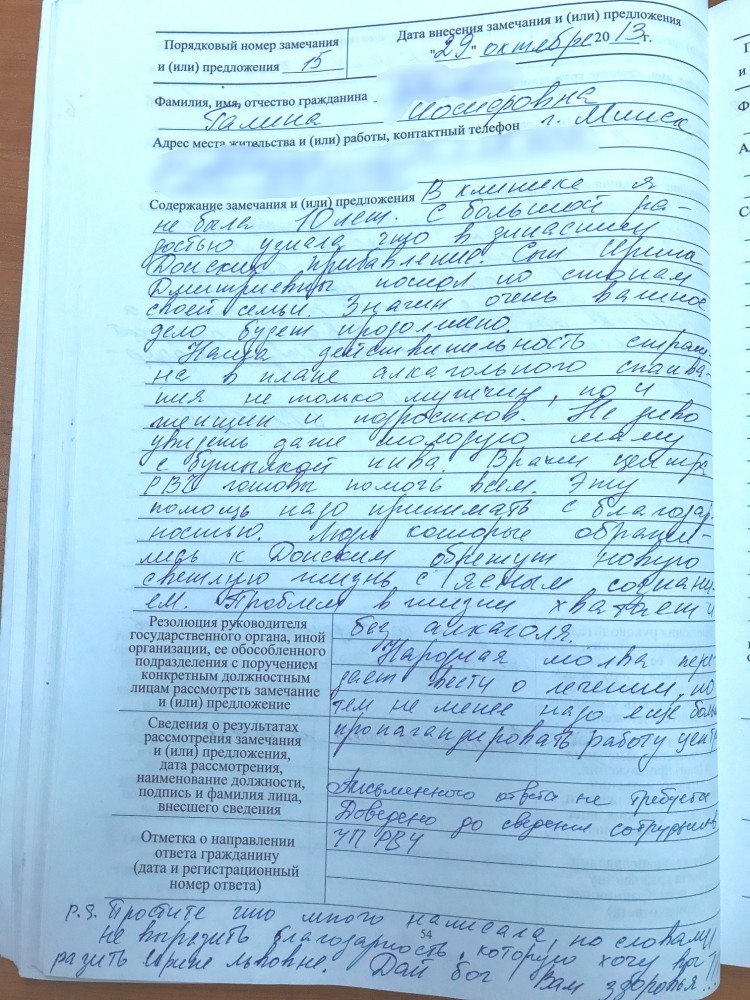 Порядковый номер замечания
и (или) предложения 15
Дата внесения замечания и (или) предложения
"29" октября 2013г.
Фамилия, имя, отчество гражданина
Галина Иосифовна
Адрес места жительства и (или) работы, контактный телефон г. Минск
Содержание замечания и (или) предложения В клинике я
не была 10 лет. С большой ра-
достью узнала что в династии
Донских прибавление. Сын Ирины
Дмитриевны пошол по стопам
своей семьи. Значит очень важное
дело будет продолжено.
Наша действительность страш-
на в плане алкагольного спаива-
ния не только мужчин, но и
женщин и подростков. Не диво
увидеть даже молодую маму
с бутылкой пива. Врачи центра
РВЧ готовы помочь всем. Эту
помощь надо принимать с благодар-
ностью. Люди которые обрати-
лись к Донским обретут новую
светлую жизнь с ясным сознани-
ем. Проблем в жизни хватает и
без алкаголя.
Народная молва пере-
дает вести о лечении, но
тем не менее надо еще боль
пропагандировать работу цент
Резолюция руководителя
государственного органа, иной
организации, ее обособленного
подразделения с поручением
конкретным должностным
лицам рассмотреть замечание
и (или) предложение
Сведения о результатах
рассмотрения замечания
и (или) предложения,
дата рассмотрения,
наименование должности,
подпись и фамилия лица,
внесшего сведения
Письменного ответа не требуется
Доведено до сведения сотрудников
УП РВЧ
Отметка о направлении
ответа гражданину
(дата и регистрационный
номер ответа)
54
P.S. Простите что много написала, но словами
не выразить благодарность, которую хочу вы-
разить Ирине Львовне. Дай бог Вам здоровья...